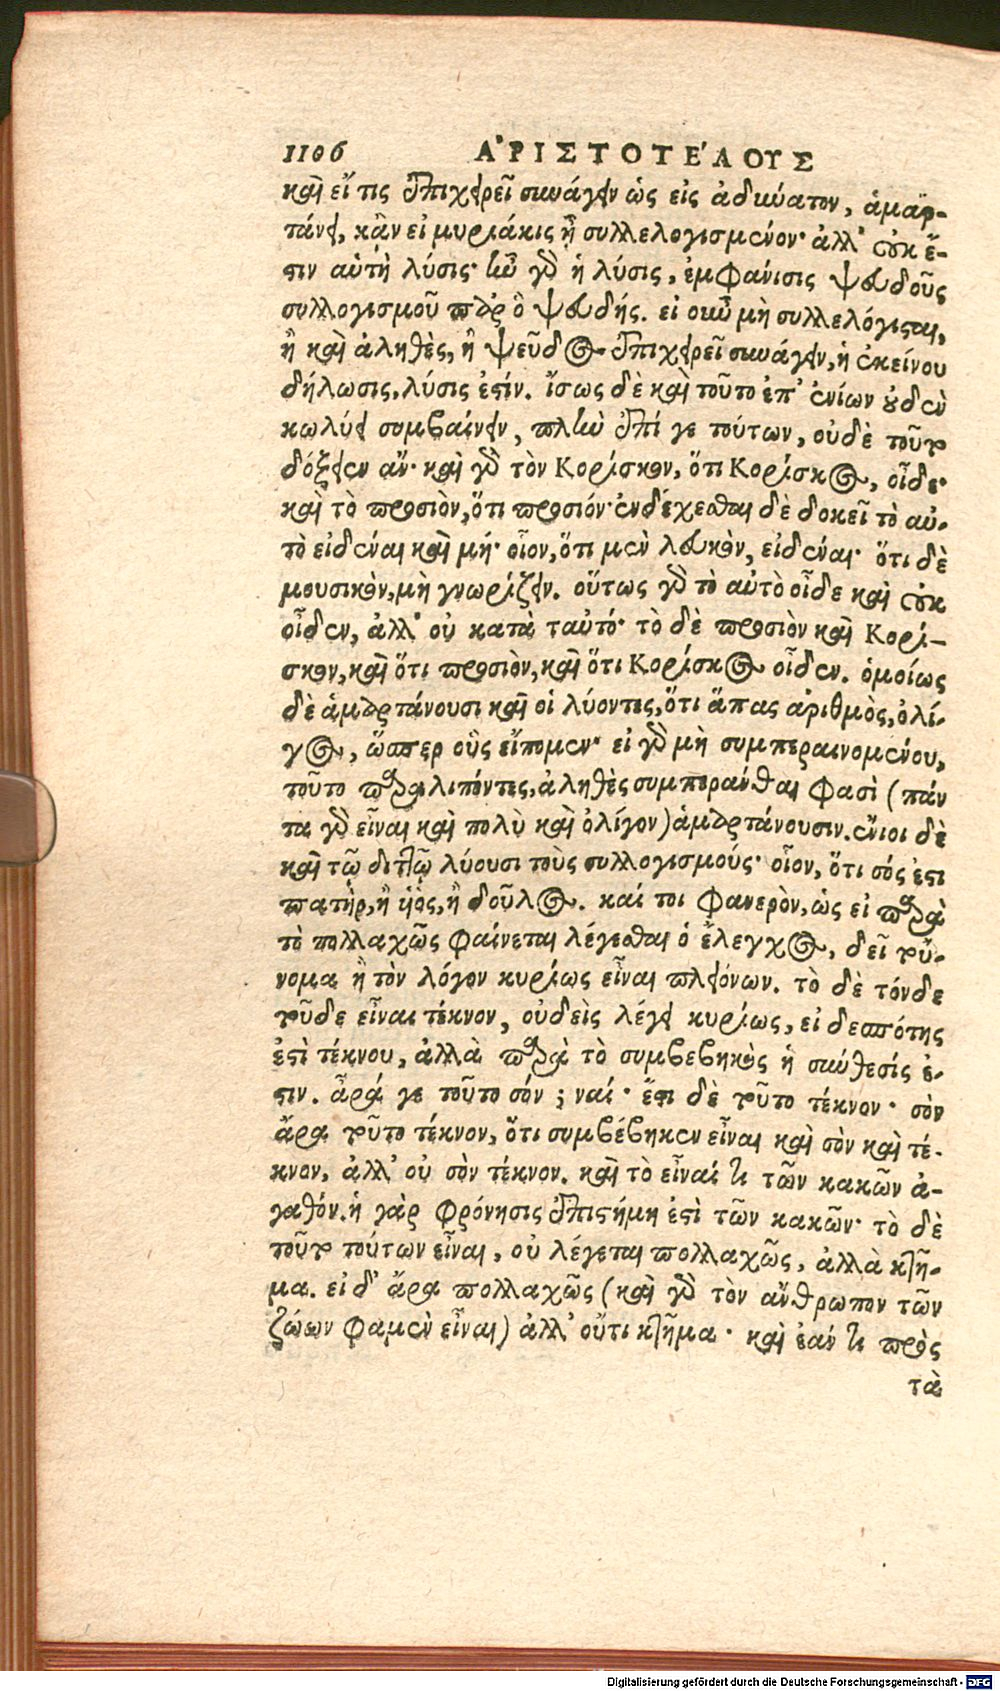 1106 ἈΡΙΣΤΟΤΈΛΟΥΣ
καὶ εἴ τις ἐπιχειρεῖ συνάγειν ὡς εἰς ἀδύνατον, ἁμαρ-
τάνει, κἂν εἰ μυριάκις ᾖ συλλελογισμένον· ἀλλ' οὐκ ἔ-
στιν αὐτὴ λύσις· ἦν γὰρ ἡ λύσις, ἐμφάνισις ψευδοῦς
συλλογισμοῦ παρ ὃ ψευδής. εἰ οὖν μὴ συλλελόγισται,
ἢ καὶ ἀληθὲς, ἢ ψεῦδος ἐπιχειρεῖ συνάγειν, ἡ ἐκείνου
δήλωσις, λύσις ἐστίν. ἴσως δὲ καὶ τοῦτο ἐπ' ἐνίων οὐδὲν
κωλύει συμβαίνειν, πλὴν ἐπί γε τούτων, οὐδὲ τοῦτο
δόξειεν ἄν· καὶ γὰρ τὸν Κορίσκον, ὅτι Κορίσκος, οἶδε·
καὶ τὸ προσιὸν, ὅτι προσιόν· ἐνδέχεσθαι δὲ δοκεῖ τὸ αὐ-
τὸ εἰδέναι καὶ μή· οἷον, ὅτι μὲν λευκὸν, εἰδέναι· ὅτι δὲ
μουσικὸν, μὴ γνωρίζειν. οὕτως γὰρ τὸ αὐτὸ οἶδε καὶ οὐκ
οἶδεν, ἀλλ' οὐ κατὰ ταὐτό· τὸ δὲ προσιὸν καὶ Κορί-
σκον, καὶ ὅτι προσιὸν, καὶ ὅτι Κορίσκος οἶδεν. ὁμοίως
δὲ ἁμαρτάνουσι καὶ οἱ λύοντες, ὅτι ἅπας ἀριθμὸς, ὀλί-
γος, ὥσπερ οὓς εἴπομεν· εἰ γὰρ μὴ συμπεραινομένου,
τοῦτο παραλιπόντες, ἀληθὲς συμπεράνθαι φασὶ (πάν
τα γὰρ εἶναι καὶ πολὺ καὶ ὀλίγον) ἁμαρτάνουσιν. ἔνιοι δὲ
καὶ τῷ διττῷ λύουσι τοὺς συλλογισμούς· οἷον, ὅτι σός ἐστι
πατὴρ, ἢ υἱός, ἢ δοῦλος. καί τοι φανερὸν, ὡς εἰ παρὰ
τὸ πολλαχῶς φαίνεται λέγεσθαι ὁ ἔλεγχος, δεῖ τοὔ-
νομα ἢ τὸν λόγον κυρίως εἶναι πλειόνων. τὸ δὲ τόνδε
τοῦδε εἶναι τέκνον, οὐδεὶς λέγει κυρίως, εἰ δεσπότης
ἐστὶ τέκνου, ἀλλὰ παρὰ τὸ συμβεβηκὸς ἡ σύνθεσίς ἐ-
στιν. ἆρά γε τοῦτο σόν; ναί· ἔστι δὲ τοῦτο τέκνον· σὸν
ἄρα τοῦτο τέκνον, ὅτι συμβέβηκεν εἶναι καὶ σὸν καὶ τέ-
κνον, ἀλλ' οὐ σὸν τέκνον. καὶ τὸ εἶναί τι τῶν κακῶν ἀ-
γαθόν. ἡ γὰρ φρόνησις ἐπιστήμη ἐστὶ τῶν κακῶν· τὸ δὲ
τοῦτο τούτων εἶναι, οὐ λέγεται πολλαχῶς, ἀλλὰ κτῆ-
μα. εἰ δ' ἄρα πολλαχῶς (καὶ γὰρ τὸν ἄνθρωπον τῶν
ζώων φαμὲν εἶναι) ἀλλ' οὔτι κτῆμα· καὶ ἐάν τι πρὸς
τὰ
Digitalisierung gefördert durch die Deutsche Forschungsgemeinschaft - DFG